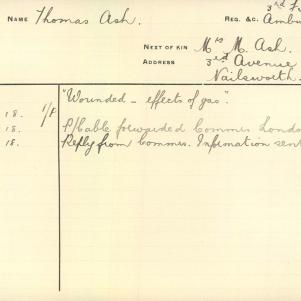 NAME Thomas Ash. REG. &C: 3rd
NEXT OF KIN Mrs M. Ash.
ADDRESS 3rd Avenue
Nailsworth.
18. 1/8 "Wounded – effects of gas".
18. P/Cable forwarded Commrs. London
18. Reply from Commrs. Information sent